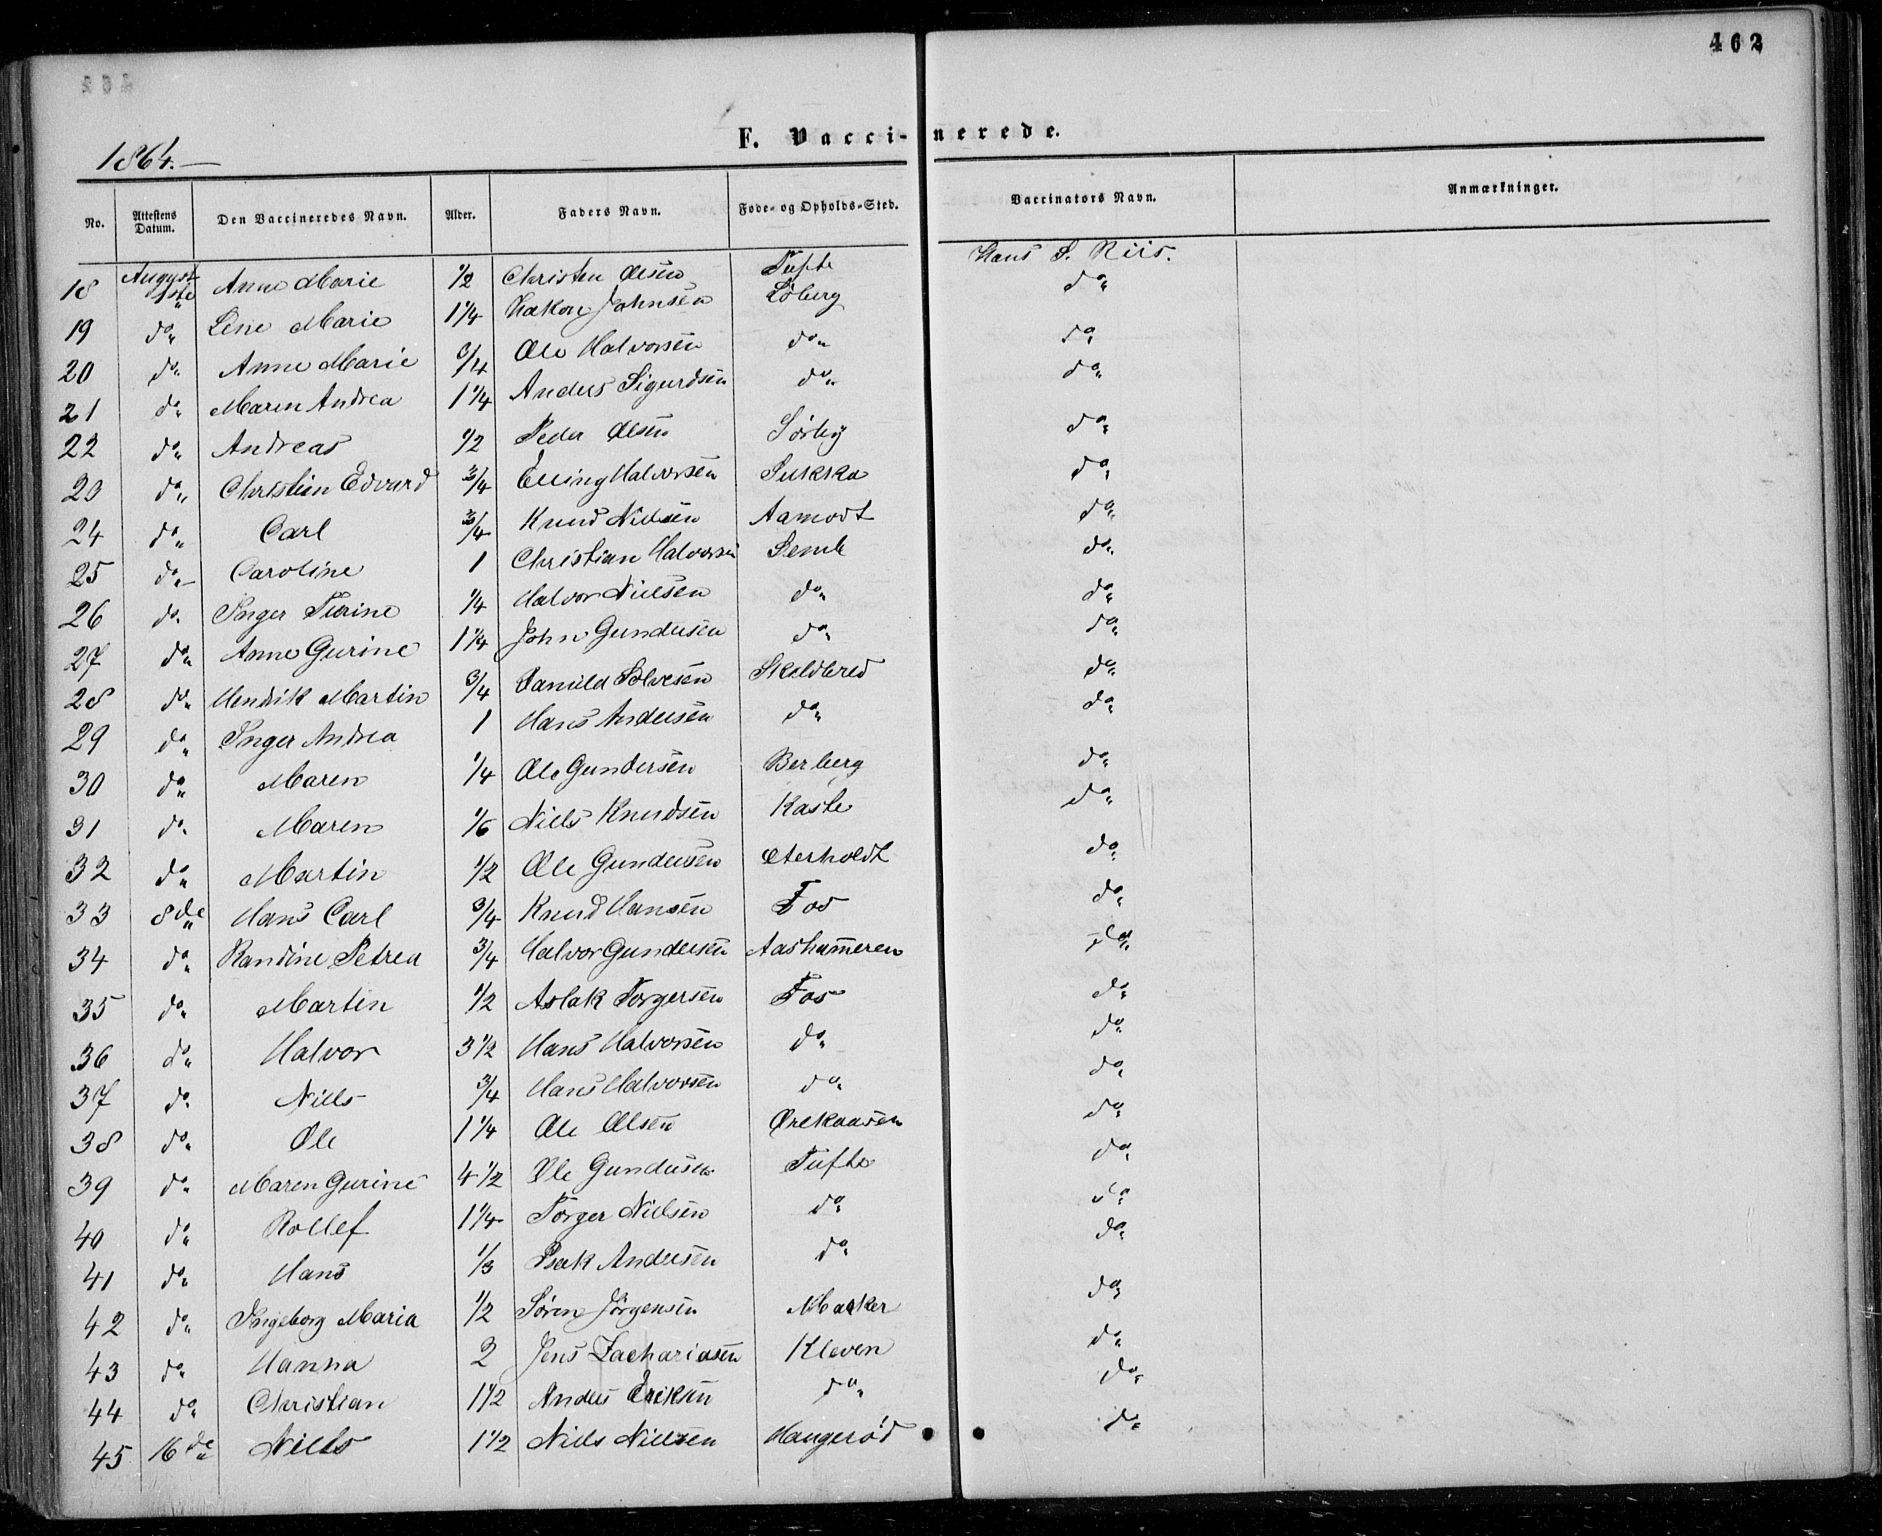 462
F. Vacci- nerede.
1864.—
No. Attestens Datum. Den Vaccineredes Navn. Alder. Faders Navn. Føde- og Opholds-Sted. Vaccinators Navn. Anmærkninger.
18 August 1ste Anne Marie 1/2 Christen Olsen Tufte Hans S. Riis.
19 do Line Marie 1 1/4 Hakon Johnsen Löberg do
20 do Anne Marie 3/4 Ole Halvorsen do do
21 do Maren Andrea 1 1/4 Anders Sigurdsen do do
22 do Andreas 1/2 Peder Olsen Sörby do
23 do Christian Edvard 3/4 Elling Halvorsen Sukska do
24 do Carl 3/4 Knud Nielsen Aamodt do
25 do Caroline 1 Christian Halvorsen Semb do
26 do Inger Turine 1/4 Halvor Nielsen do do
27 do Anne Gurine 1 1/4 John Gundersen do do
28 do Hendrik Martin 3/4 Sölvesen Skeldbred do
29 do Inger Andrea 1 Hans Andersen do do
30 do Maren 1/4 Ole Gundersen Berberg do
31 do Maren 1/6 Niels Knudsen Kaste do
32 do Martin 1/2 Ole Gundersen Oterholdt do
33 8de Hans Carl 3/4 Knud Hansen Fos do
34 do Randine Petrea 3/4 Halvor Gundersen Aashammeren do
35 do Martin 1/2 Aslak Torgersen Fos do
36 do Halvor 3 1/2 Hans Halvorsen do do
37 do Niels 3/4 Hans Halvorsen do do
38 do Ole 1 1/4 Ole Olsen Ørekaasen do
39 do Maren Gurine 4 1/2 Ole Gundersen Tufte do
40 do Rollef 1 1/4 Torger Nielsen do do
41 do Hans 1/3 Isak Andersen do do
42 do Ingeborg Maria 1/2 Sören Jörgensen Marker do
43 do Hanna 2 Jens Zachariasen Kleven do
44 do Christian 1 1/2 Anders Eriksen do do
45 16de Niels 1 1/2 Niels Nielsen Haugeröd do